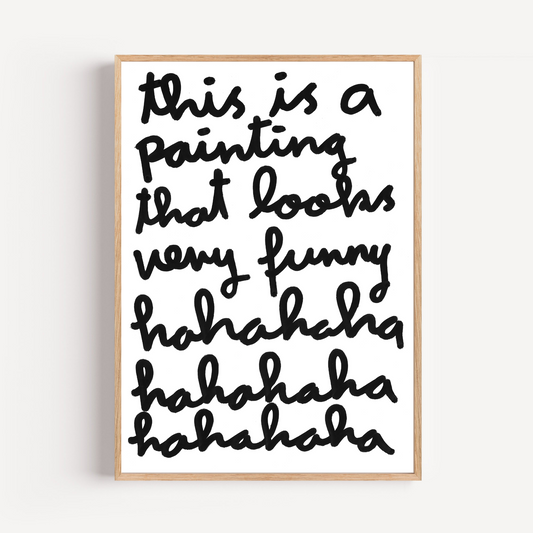 this is a
painting
that looks
very funny
hahahaha
hahahaha
hahahaha